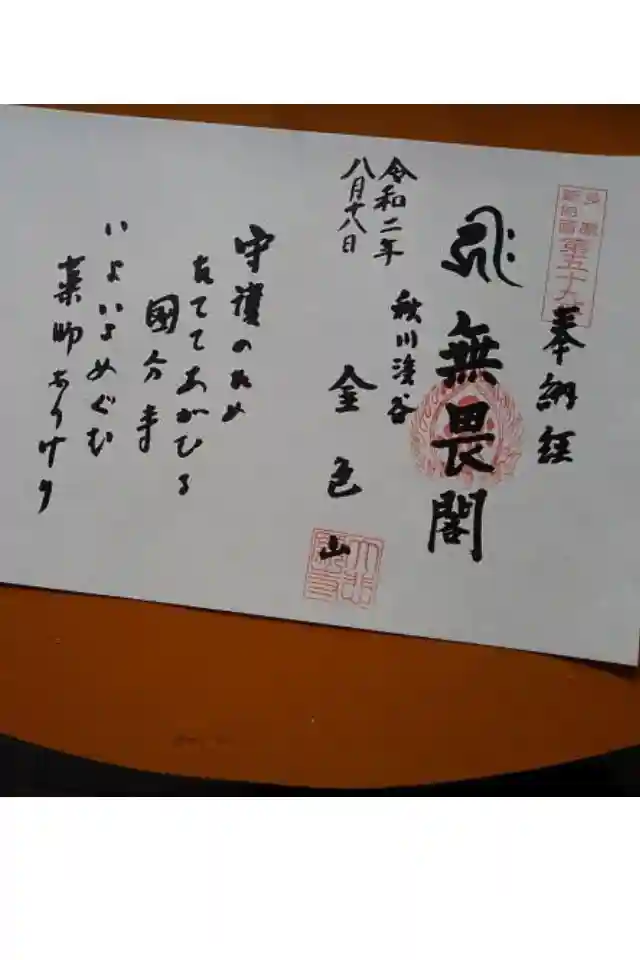 多摩
新四国
第五十九
奉納経
無畏閣
秋川渓谷
令和二年
八月十八日
金色山
守護のため
たててあがむる
國分寺
いよいよめぐむ
薬師なりけり